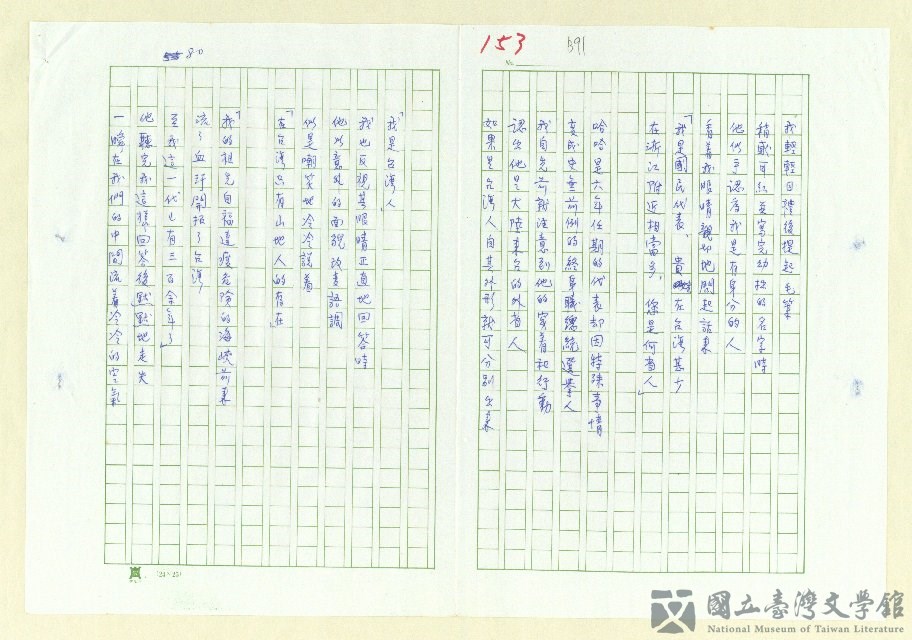 153
391
No.
我輕輕回禮後提起毛筆
稍感可紅並寫完幼拙的名字時
他似乎認為我是有身分的人
看著我眼睛親切地問起話來
「我是國民代表,貴姓在台灣甚少
在浙江附近相當多,你是何省人」
哈哈是六年任期的代表卻因特殊事情
變成史無前例的終身職總統選舉人
我自先前就注意到他的穿着和行動
認出他是大陸來台的外省人
如果是台灣人自其外形就可分別出來
80
「我是台灣人」
我也反視其眼睛正直地回答時
他以意外的面貌改變語調
似是嘲笑地冷冷說著
「在台灣只有山地人的存在」
「我的祖先自福建渡危險的海峽前來
流了血汗開拓了台灣
至我這一代也有三百余年了」
他聽完我這樣回答後默默地走失
一瞬在我們的中間流著冷冷的空氣
(24×25)
國立臺灣文學館
National Museum of Taiwan Literature